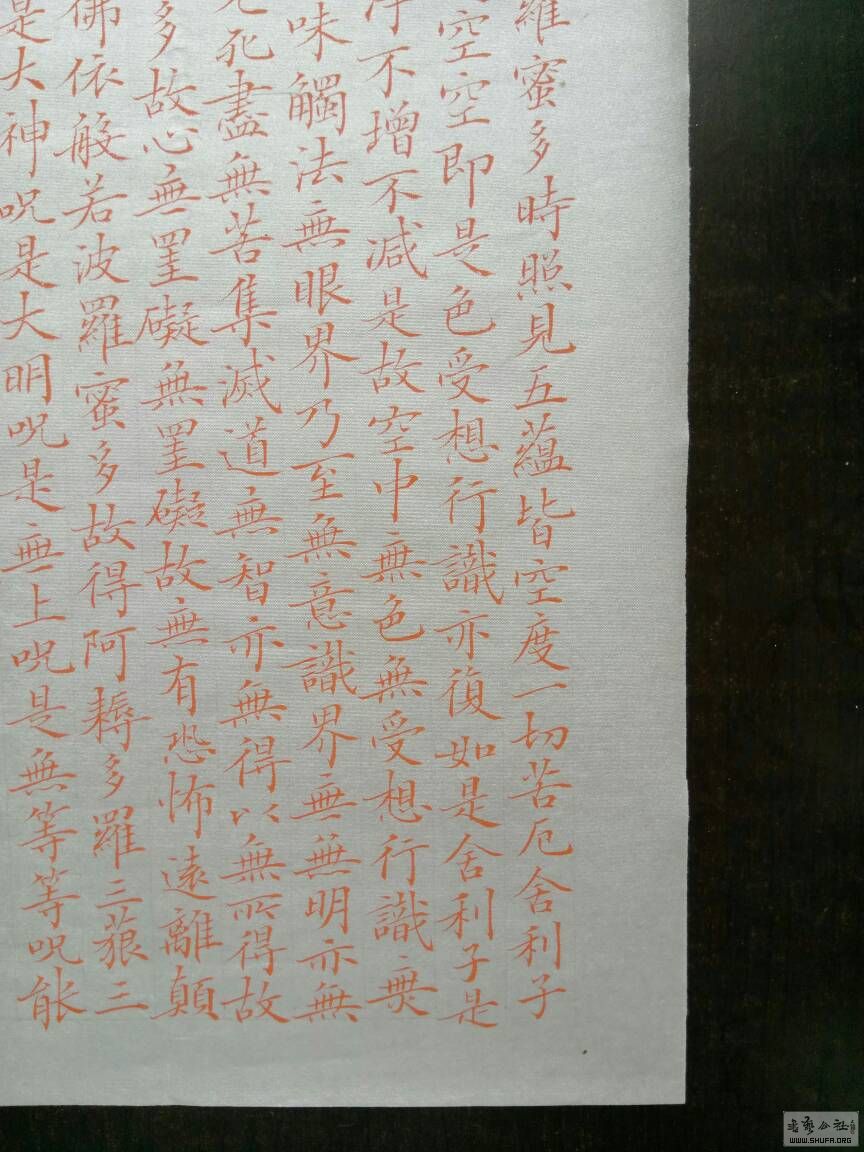 羅蜜多時照見五蘊皆空度一切苦厄舍利子
空空即是色受想行識亦復如是舍利子是
淨不增不減是故空中無色無受想行識無
味觸法無眼界乃至無意識界無無明亦無
死盡無苦集滅道無智亦無得以無所得故
多故心無罣礙無罣礙故無有恐怖遠離顛
佛依般若波羅蜜多故得阿耨多羅三藐三
是大神呪是大明呪是無上呪是無等等呪能
WWW.SHUFA.ORG